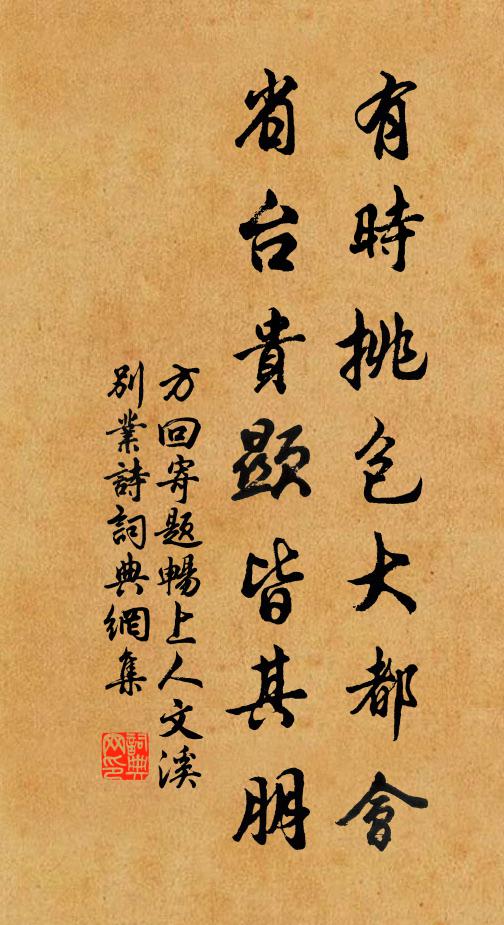 有時挑包大都會
省台貴顯皆其朋
方回寄題暢上人文溪
別業詩詞典網集
詞典
网印